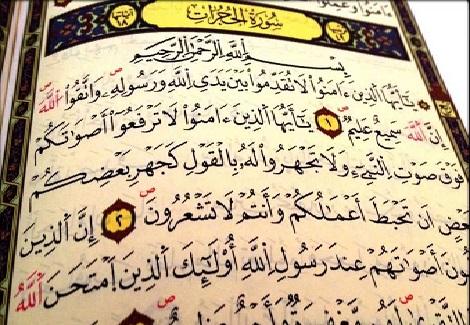 ءَامَنُوا۟ وَعَمِلُوا۟
١٨ سُورَةُ الْحُجُرَاتِ
بِسْمِ ٱللَّهِ ٱلرَّحْمَٰنِ ٱلرَّحِيمِ
يَٰٓأَيُّهَا ٱلَّذِينَ ءَامَنُوا۟ لَا تُقَدِّمُوا۟ بَيْنَ يَدَىِ ٱللَّهِ وَرَسُولِهِۦ وَٱتَّقُوا۟ ٱللَّهَ
إِنَّ ٱللَّهَ سَمِيعٌ عَلِيمٌ ١ يَٰٓأَيُّهَا ٱلَّذِينَ ءَامَنُوا۟ لَا تَرْفَعُوٓا۟ أَصْوَٰتَكُمْ
فَوْقَ صَوْتِ ٱلنَّبِىِّ وَلَا تَجْهَرُوا۟ لَهُۥ بِٱلْقَوْلِ كَجَهْرِ بَعْضِكُمْ
لِبَعْضٍ أَن تَحْبَطَ أَعْمَٰلُكُمْ وَأَنتُمْ لَا تَشْعُرُونَ ٢ إِنَّ ٱلَّذِينَ
يَغُضُّونَ أَصْوَٰتَهُمْ عِندَ رَسُولِ ٱللَّهِ أُو۟لَٰٓئِكَ ٱلَّذِينَ ٱمْتَحَنَ ٱللَّهُ